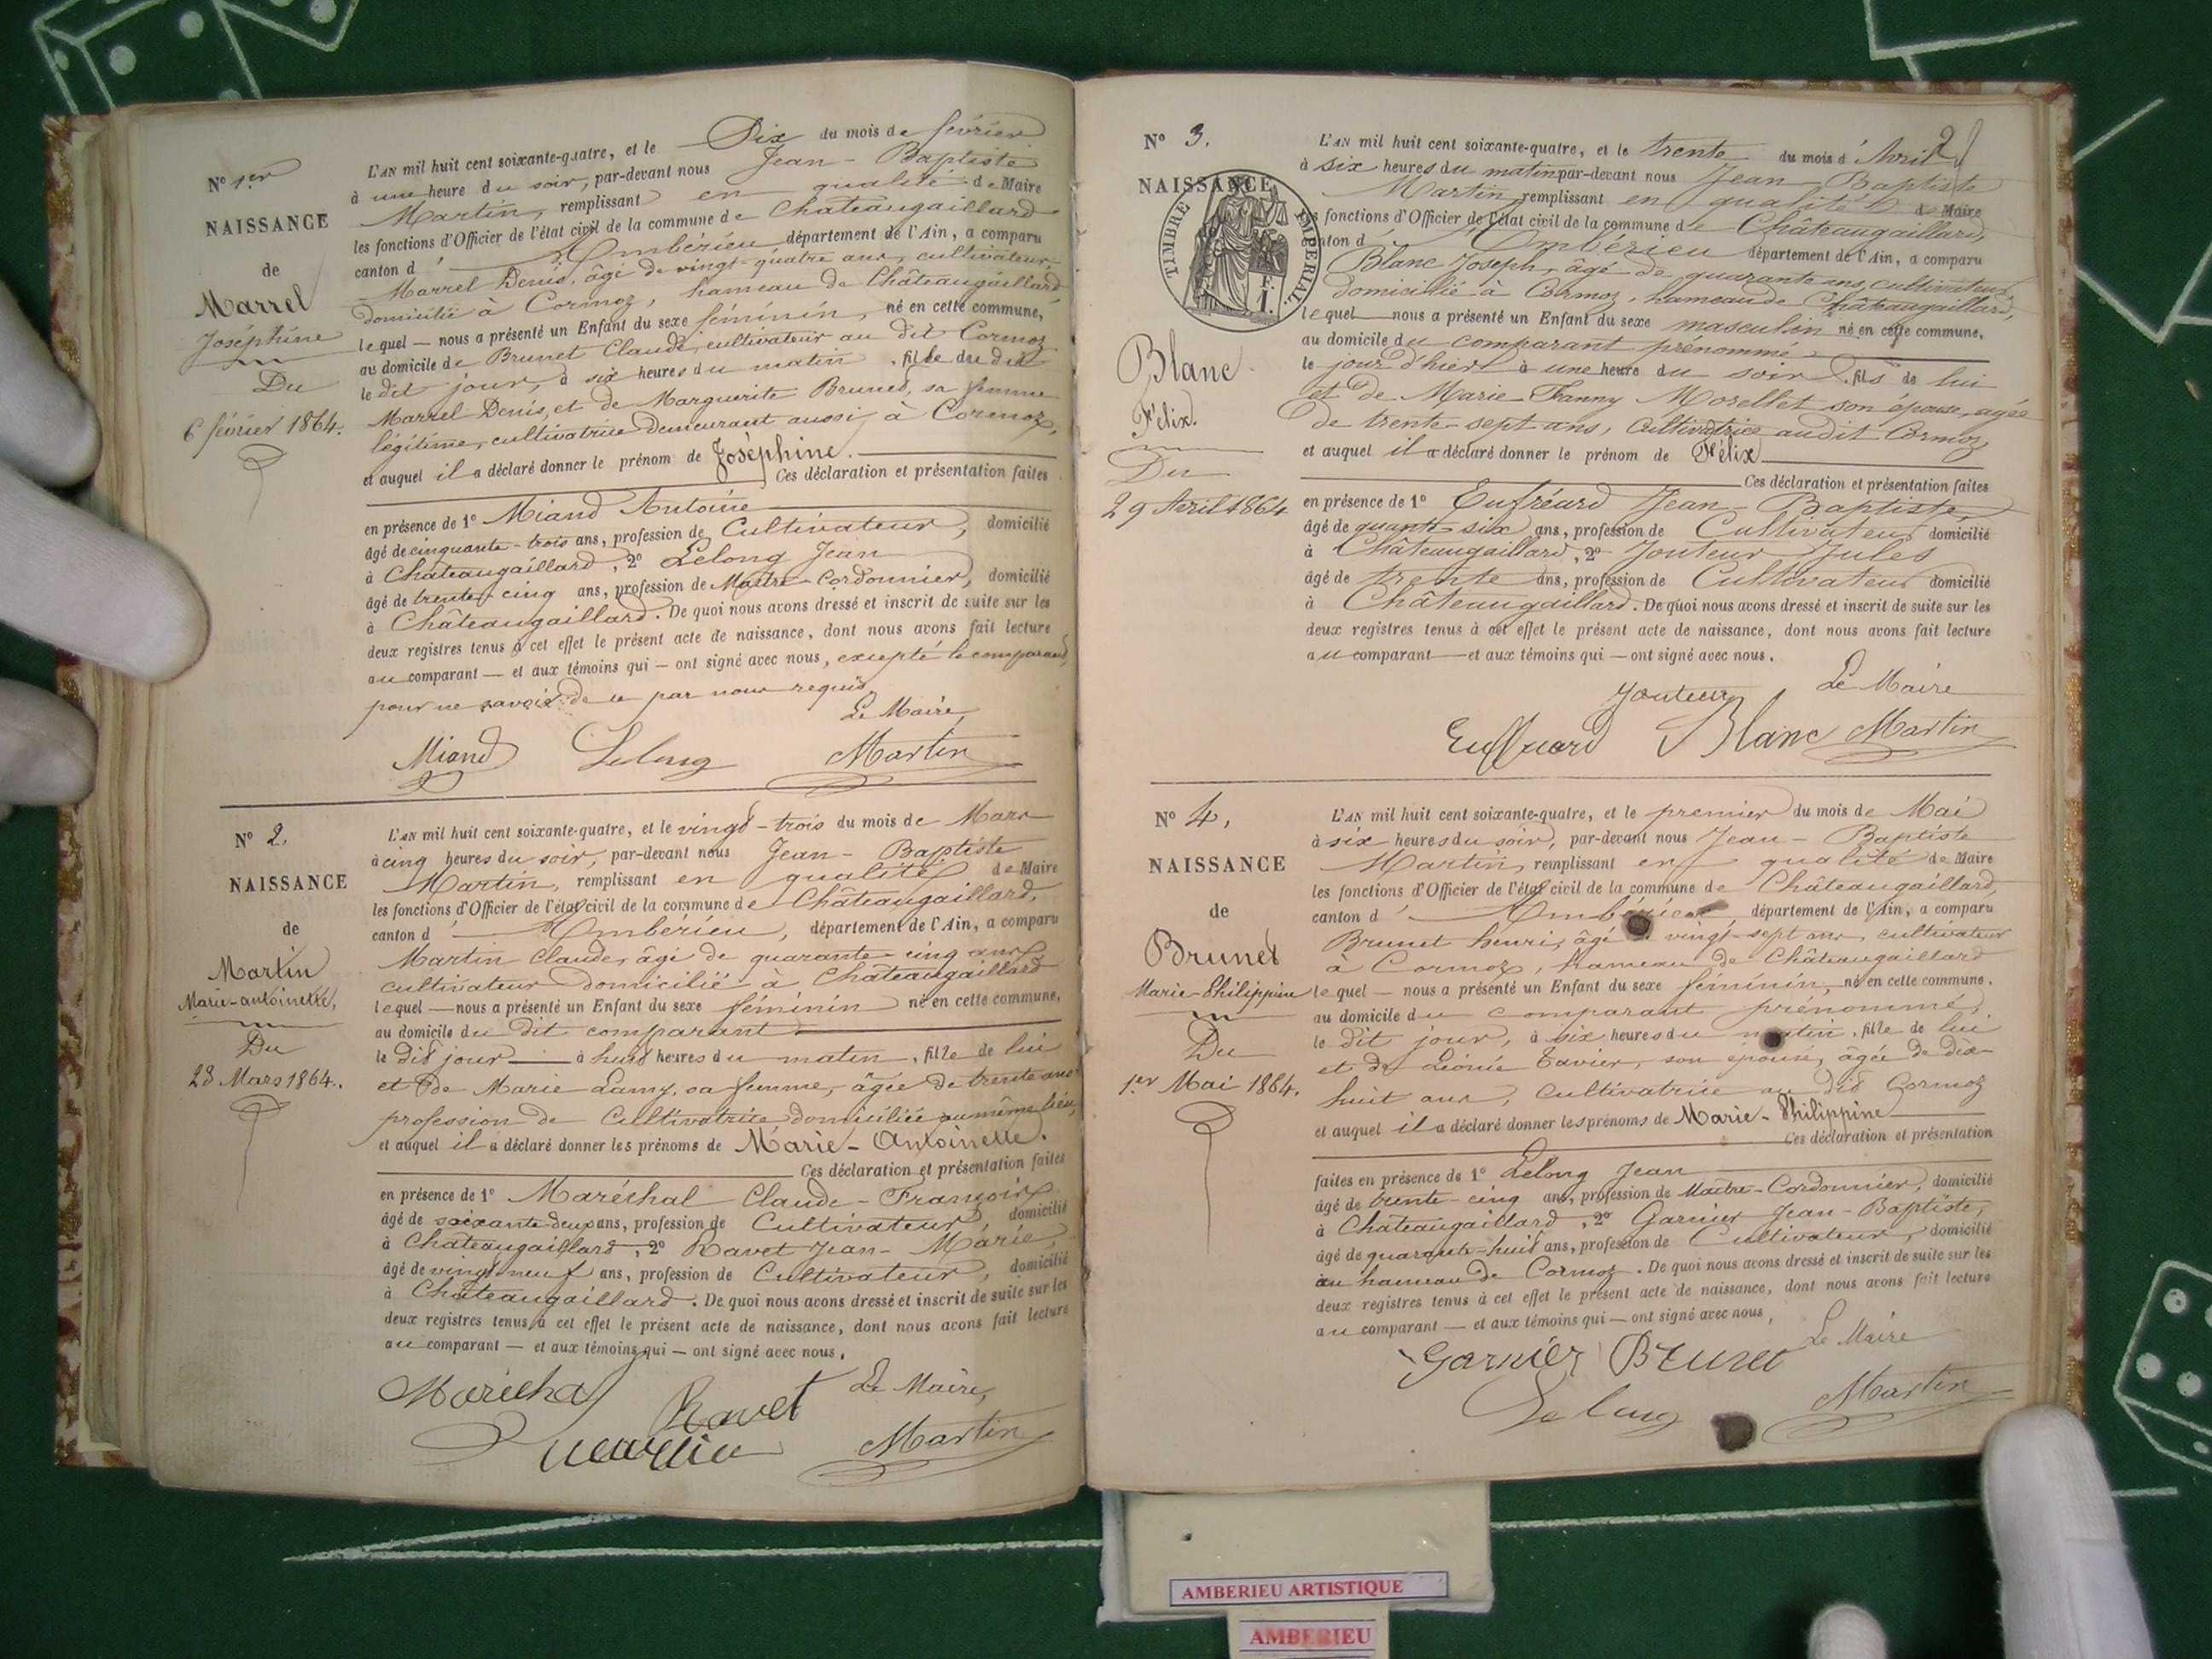 Nº 1er
NAISSANCE
de
Marrel
Joséphine
Du
6 février 1864.
L'AN mil huit cent soixante-quatre, et le Dix du mois de février
à une heure du soir, par-devant nous Jean-Baptiste
Martin, remplissant en qualité de Maire
les fonctions d'Officier de l'état civil de la commune de Châteaugaillard
canton d'Ambérieu département de l'Ain, a comparu
Marrel Denis, âgé de vingt-quatre ans, cultivateur,
domicilié à Cormoz, hameau de Châteaugaillard,
lequel — nous a présenté un Enfant du sexe féminin, né en cette commune,
au domicile de Brunet Claude, cultivateur au dit Cormoz
le dit jour, à six heures du matin, fille du dit
Marrel Denis, et de Marguerite Brunet, sa femme
légitime, cultivatrice demeurant aussi à Cormoz,
et auquel il a déclaré donner le prénom de Joséphine.
Ces déclaration et présentation faites
en présence de 1º Miand Antoine
âgé de cinquante-trois ans, profession de Cultivateur, domicilié
à Châteaugaillard, 2º Lelong Jean
âgé de trente-cinq ans, profession de Maître-Cordonnier, domicilié
à Châteaugaillard. De quoi nous avons dressé et inscrit de suite sur les
deux registres tenus à cet effet le présent acte de naissance, dont nous avons fait lecture
au comparant — et aux témoins qui — ont signé avec nous, excepté le comparant,
pour ne savoir de ce par nous requis
Le Maire,
Miand Lelong Martin
Nº 2.
NAISSANCE
de
Martin
Marie-antoinette,
Du
23 Mars 1864.
L'AN mil huit cent soixante-quatre, et le vingt-trois du mois de Mars
à cinq heures du soir, par-devant nous Jean-Baptiste
Martin, remplissant en qualité de Maire
les fonctions d'Officier de l'état civil de la commune de Châteaugaillard,
canton d'Ambérieu, département de l'Ain, a comparu
Martin Claude, âgé de quarante-cinq ans
cultivateur domicilié à Châteaugaillard
lequel — nous a présenté un Enfant du sexe féminin né en cette commune,
au domicile du dit comparant
le dit jour à huit heures du matin, fille de lui
et de Marie Lamy, sa femme, âgée de trente ans
profession de Cultivatrice domiciliée au même lieu,
et auquel il a déclaré donner les prénoms de Marie-Antoinette.
Ces déclaration et présentation faites
en présence de 1º Maréchal Claude-François
âgé de soixante-deux ans, profession de Cultivateur, domicilié
à Châteaugaillard, 2º Ravet Jean-Marie,
âgé de vingt-neuf ans, profession de Cultivateur, domicilié
à Châteaugaillard. De quoi nous avons dressé et inscrit de suite sur les
deux registres tenus à cet effet le présent acte de naissance, dont nous avons fait lecture
au comparant — et aux témoins qui — ont signé avec nous.
Le Maire,
Maréchal Ravet
Martin Martin
2
Nº 3.
NAISSANCE
TIMBRE IMPERIAL.
1 F.
Blanc
Félix.
Du
29 Avril 1864
L'AN mil huit cent soixante-quatre, et le trente du mois d'Avril
à six heures du matin par-devant nous Jean-Baptiste
Martin remplissant en qualité de Maire
les fonctions d'Officier de l'état civil de la commune de Châteaugaillard,
canton d'Ambérieu département de l'Ain, a comparu
Blanc Joseph, âgé de quarante ans, cultivateur,
domicilié à Cormoz, hameau de Châteaugaillard,
lequel nous a présenté un Enfant du sexe masculin né en cette commune,
au domicile du comparant prénommé
le jour d'hier à une heure du soir, fils de lui
et de Marie-Fanny Morellet son épouse, agée
de trente-sept ans, Cultivatrice audit Cormoz,
et auquel il a déclaré donner le prénom de Félix
Ces déclaration et présentation faites
en présence de 1º Jean-Baptiste,
âgé de six ans, profession de Cultivateur domicilié
à Châteaugaillard, 2º Jouteur Jules
âgé de trente ans, profession de Cultivateur domicilié
à Châteaugaillard. De quoi nous avons dressé et inscrit de suite sur les
deux registres tenus à cet effet le présent acte de naissance, dont nous avons fait lecture
au comparant — et aux témoins qui — ont signé avec nous.
Le Maire
Jouteur
Blanc Martin
Nº 4,
NAISSANCE
de
Brunet
Marie-Philippine
Du
1er Mai 1864.
L'AN mil huit cent soixante-quatre, et le premier du mois de Mai
à six heures du soir, par-devant nous Jean-Baptiste
Martin, remplissant en qualité de Maire
les fonctions d'Officier de l'état civil de la commune de Châteaugaillard,
canton d'Ambérieu, département de l'Ain, a comparu
Brunet henri, âgé de vingt-sept ans, cultivateur
à Cormoz, hameau de Châteaugaillard
lequel — nous a présenté un Enfant du sexe féminin, né en cette commune,
au domicile du comparant prénommé,
le dit jour, à six heures du matin, fille de lui
et de Léonie Tavier, son épouse, âgée de dix-
huit ans, cultivatrice au dit Cormoz
et auquel il a déclaré donner les prénoms de Marie-Philippine
Ces déclaration et présentation
faites en présence de 1º Lelong Jean
âgé de trente-cinq ans, profession de Maître-Cordonnier, domicilié
à Châteaugaillard, 2º Garnier Jean-Baptiste,
âgé de quarante-huit ans, profession de Cultivateur, domicilié
au hameau de Cormoz. De quoi nous avons dressé et inscrit de suite sur les
deux registres tenus à cet effet le présent acte de naissance, dont nous avons fait lecture
au comparant — et aux témoins qui — ont signé avec nous,
Le Maire
Garnier Brunet
Lelong Martin
AMBERIEU ARTISTIQUE
AMBERIEU